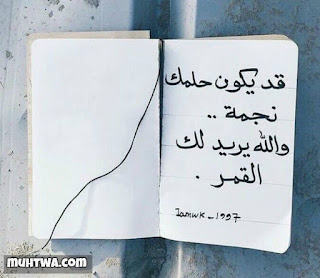 قد يكون حلمك
نجمة ..
والله يريد لك
القمر .
Iamwk_1997
MUHTWA.COM